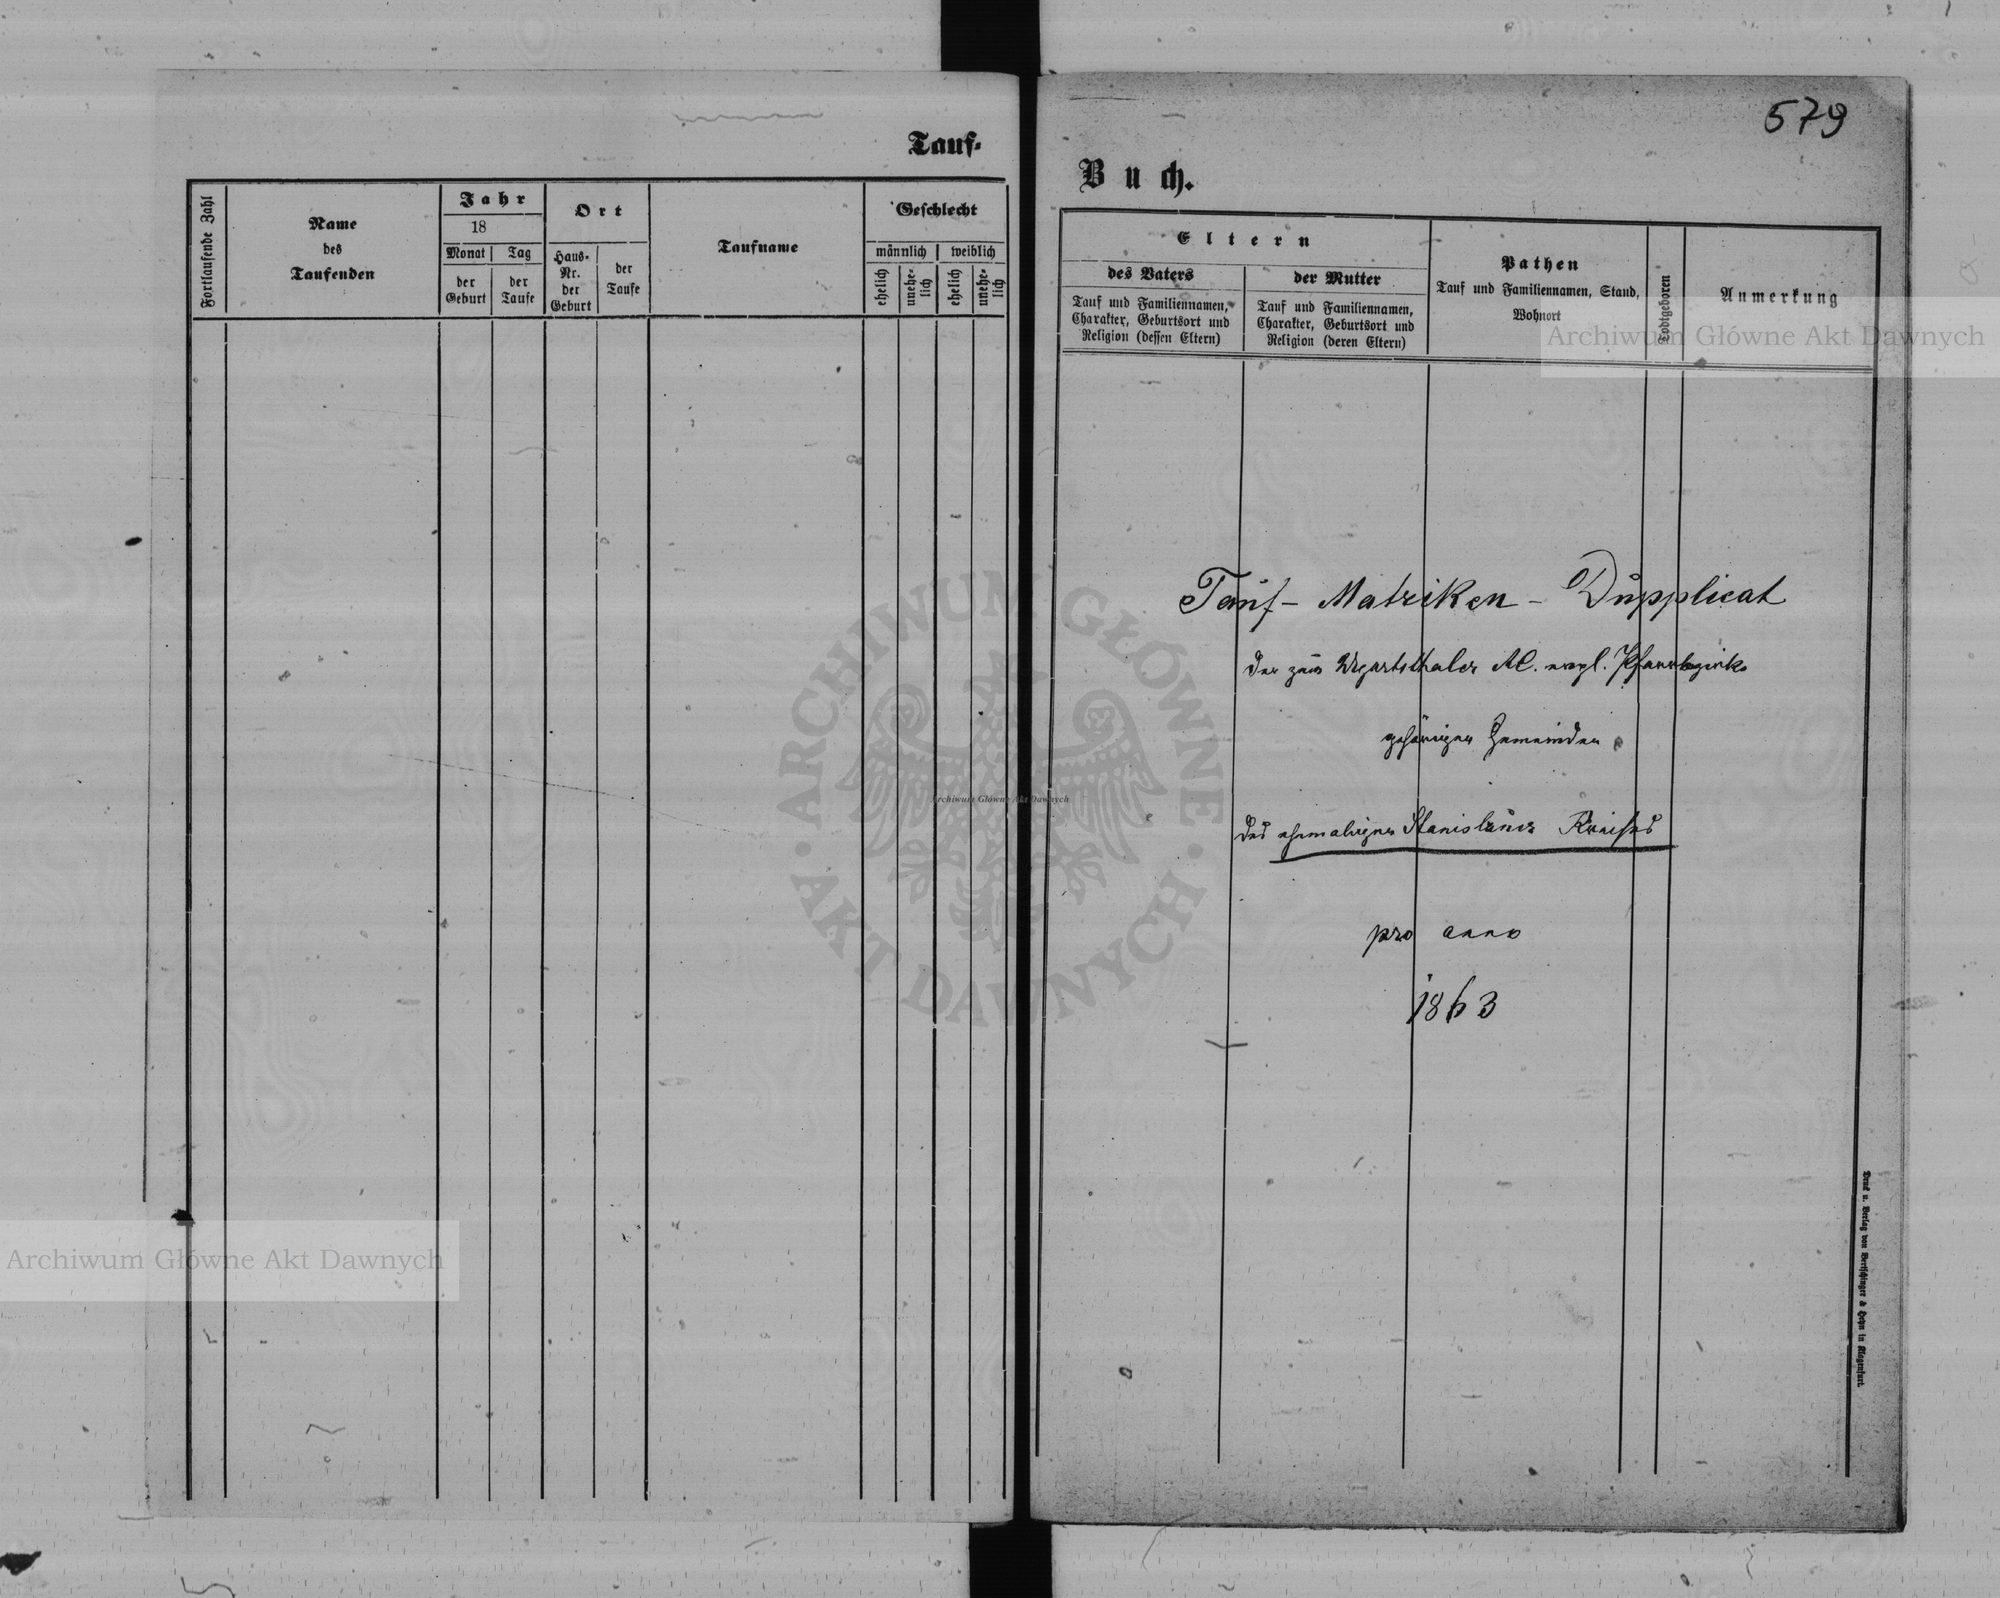 Tauf-
Fortlaufende Zahl
Name
des
Taufenden
Jahr
18
Monat
Tag
der
Geburt
der
Taufe
Ort
Haus-
Nr.
der
Geburt
der
Taufe
Taufname
Geschlecht
männlich
weiblich
ehelich
unehe-
lich
ehelich
unehe-
lich
579
Buch.
Eltern
des Vaters
Tauf und Familiennamen,
Charakter, Geburtsort und
Religion (dessen Eltern)
der Mutter
Tauf und Familiennamen,
Charakter, Geburtsort und
Religion (deren Eltern)
Pathen
Tauf und Familiennamen, Stand,
Wohnort
Todtgeboren
Anmerkung
Archiwum Główne Akt Dawnych
Tauf-Matriken-Dupplicat
der zum Ugartsthaler evgl. Pfarrbezirke
gehörigen Gemeinden
des ehemaligen Stanislauer Kreises
pro anno
1863
ARCHIWUM GŁÓWNE
AKT DAWNYCH
Archiwum Główne Akt Dawnych
Archiwum Główne Akt Dawnych
Druck u. Verlag von Bertschinger & Heyn in Klagenfurt.